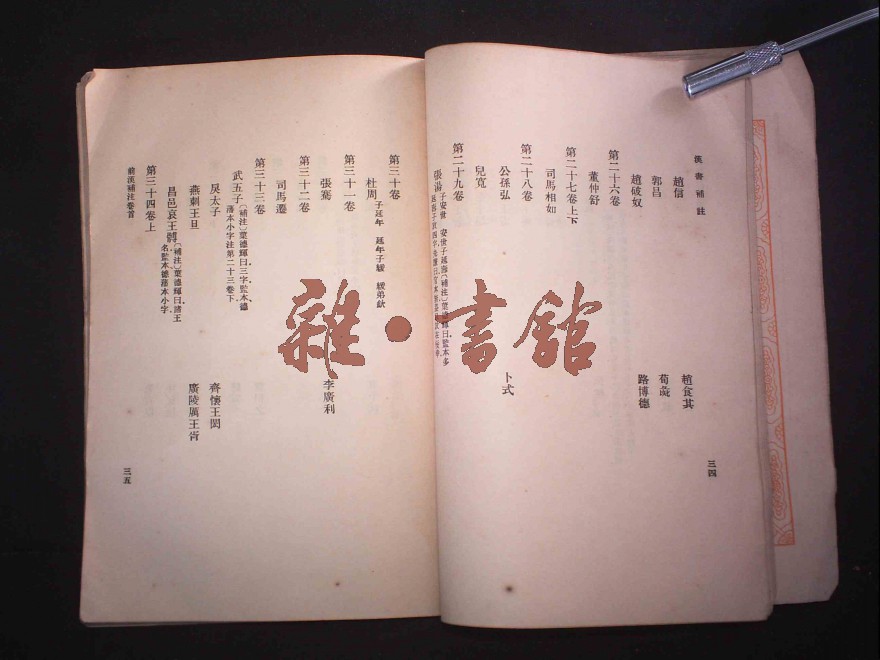 漢書補註
趙信 趙食其
郭昌 荀彘
趙破奴 路博德
第二十六卷
董仲舒
第二十七卷上下
司馬相如
第二十八卷
公孫弘 卜式
兒寬
第二十九卷
張湯 子安世 安世子延壽
三四
第三十卷
杜周 子延年 延年子緩 緩弟欽
第三十一卷
張騫 李廣利
第三十二卷
司馬遷
第三十三卷
武五子 〔補注〕葉德輝曰三字監本德藩本小字注第二十三卷下
戾太子 齊懷王閎
燕剌王旦 廣陵厲王胥
昌邑哀王髆 〔補注〕葉德輝曰諸王名監本德藩本小字
第三十四卷上
前漢補注卷首
三五
雜·書館